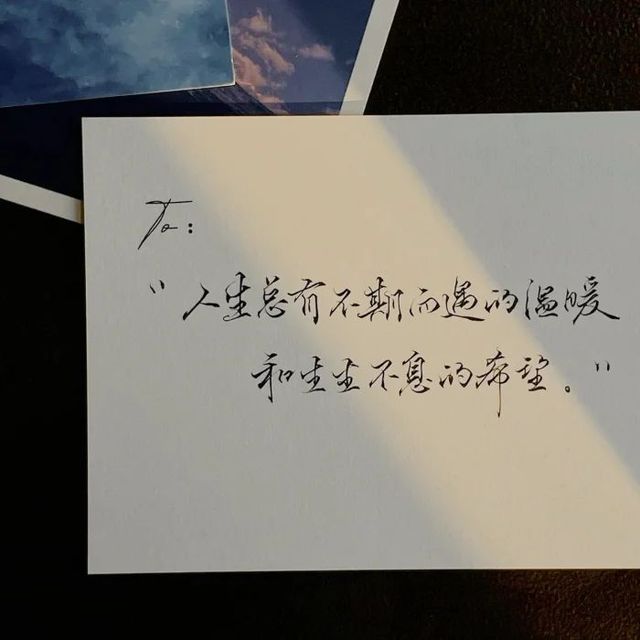 To:
"人生总有不期而遇的温暖
和生生不息的希望。"